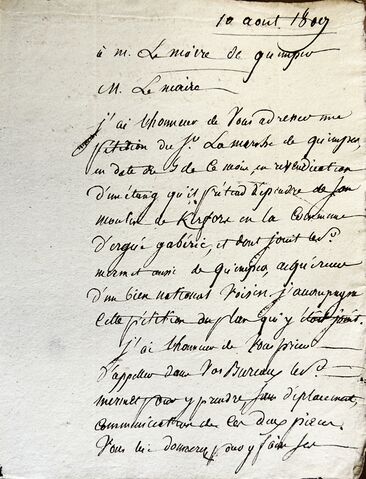 10 aout 1807
à M. Le maire de quimper
M. Le maire
j'ai l'honneur de vous adresser une
petition du Sr. La marche de quimper,
en date du 5 de ce mois, en revendication
d'un étang qu'il prétend dépendre de son
moulin de Kerfors en la commune
d'ergué gabéric, et dont jouit le Sr.
mermet aussi de quimper acquéreur
d'un bien national voisin. j'accompagne
cette pétition du plan qui y était joint.
j'ai l'honneur de vous prier
d'appeller dans vos Bureaux le Sr.
mermet pour y prendre sans déplacement,
communication de ces deux pièces.
Vous lui donnerez pour y faire ses